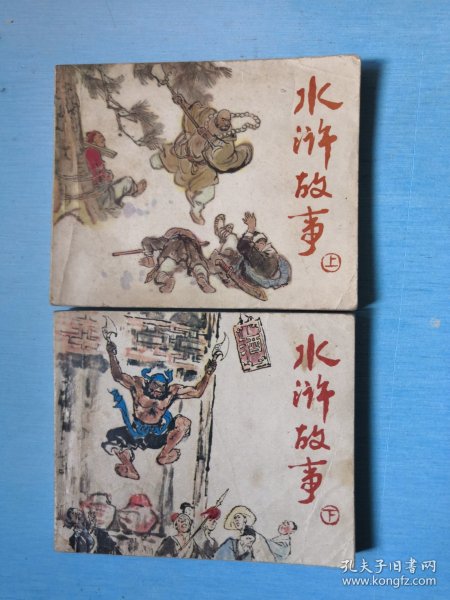 水浒故事
上
水浒故事
下
孔夫子旧书网
www.kongfz.com